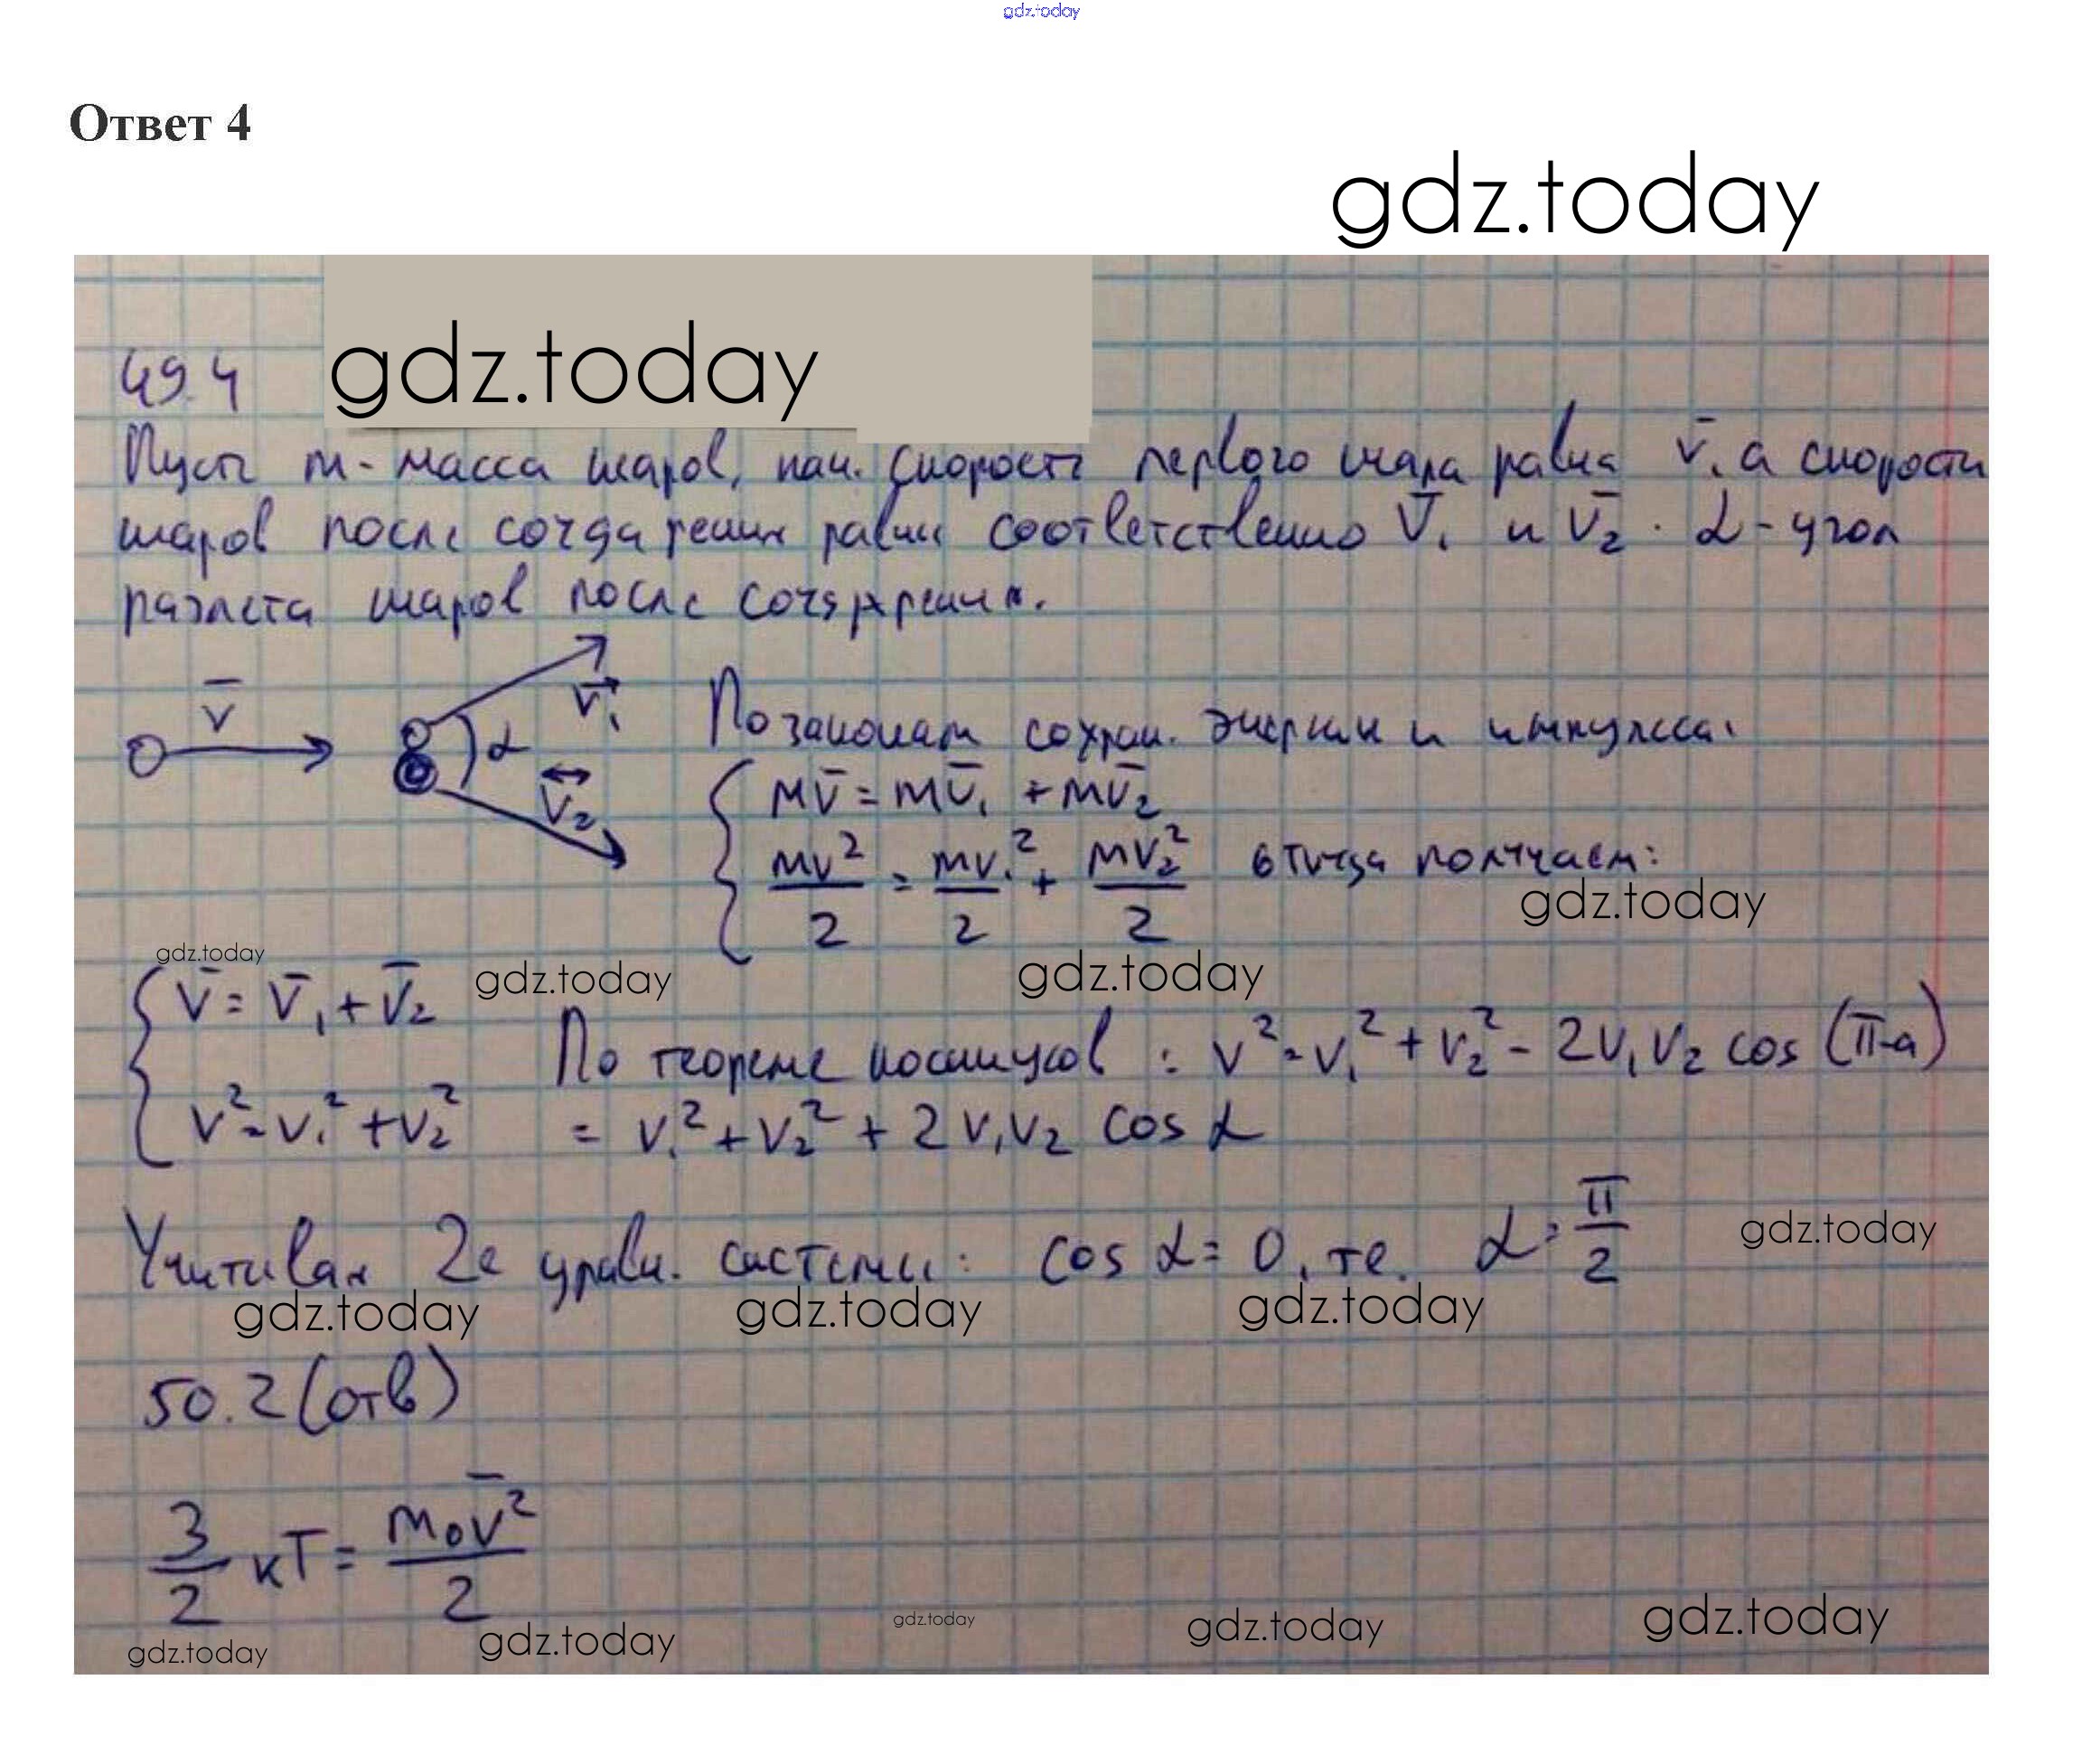 gdz.today
Ответ 4
gdz.today
gdz.today
49.4
Пусть m - масса шаров, нач. скорость первого шара равна v̄, а скорости
шаров после соударения равны соответственно v̄₁ и v̄₂. α - угол
разлета шаров после соударения.
v̄
v⃗₁
α
v⃗₂
По законам сохран. энергии и импульса:
mv̄ = mv̄₁ + mv̄₂
mv²/2 = mv₁²/2 + mv₂²/2 отсюда получаем:
gdz.today
gdz.today
gdz.today
gdz.today
v̄ = v̄₁ + v̄₂
По теореме косинусов : v² = v₁² + v₂² - 2v₁v₂ cos (π-α)
v² = v₁² + v₂²
= v₁² + v₂² + 2v₁v₂ cos α
Учитывая 2е уравн. системы: cos α = 0, те. α = π/2
gdz.today
gdz.today
gdz.today
gdz.today
50.2 (отв)
3/2 кТ = m₀v̄²/2
gdz.today
gdz.today
gdz.today
gdz.today
gdz.today